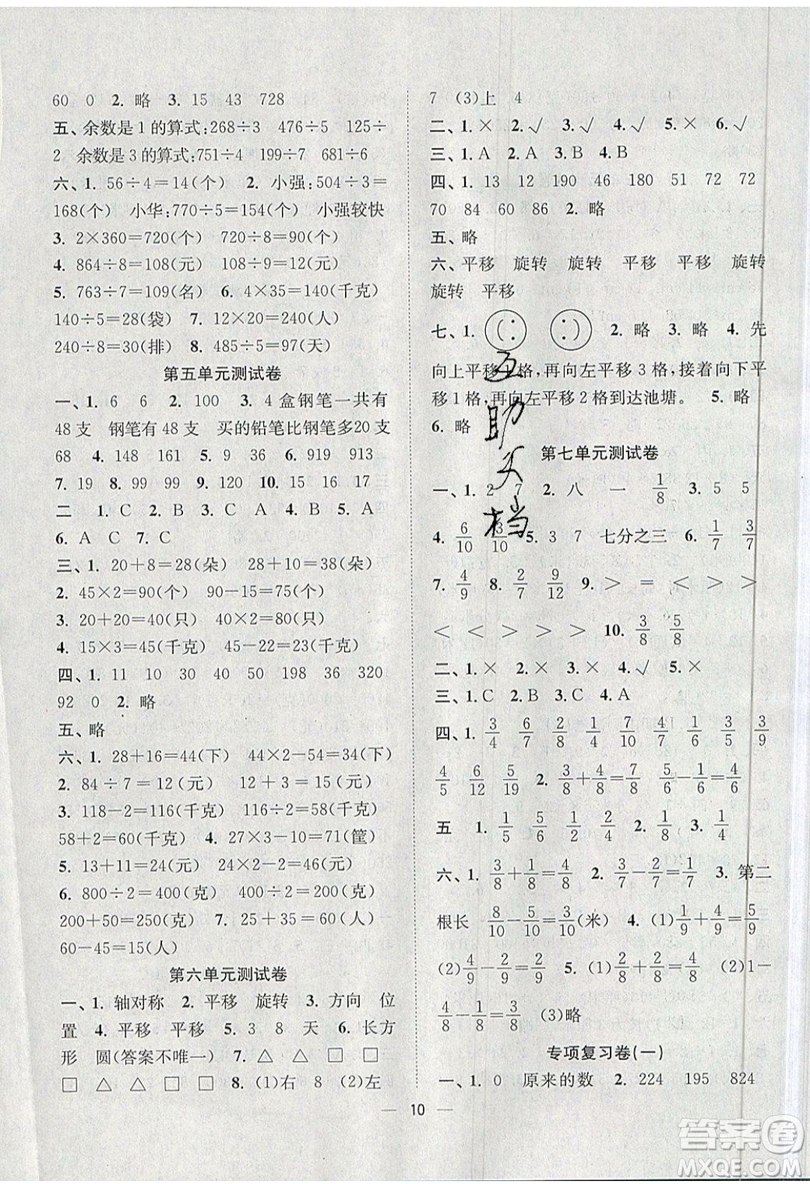 60 0 2. 略 3. 15 43 728
五、余数是 1 的算式:268÷3 476÷5 125÷
2 余数是 3 的算式:751÷4 199÷7 681÷6
六、1. 56÷4=14(个) 2. 小强:504÷3=
168(个) 小华:770÷5=154(个) 小强较快
3. 2×360=720(个) 720÷8=90(个)
4. 864÷8=108(元) 108÷9=12(元)
5. 763÷7=109(名) 6. 4×35=140(千克)
140÷5=28(袋) 7. 12×20=240(人)
240÷8=30(排) 8. 485÷5=97(天)
第五单元测试卷
一、1. 6 6 2. 100 3. 4 盒钢笔一共有
48 支 钢笔有 48 支 买的铅笔比钢笔多20 支
68 4. 180 41 5. 9 36 6. 919 913
7. 19 8. 88 129 9. 90 10. 15 15
二 1. C 2. B 3. C 4. A 5. B
6. A C 7. C
三、1. 20+8=28(朵) 20+28=48(朵)
2. 45×2=90(元) 90-15=75(元)
3. 20+20=40(只) 40×2=80(只)
4. 15×3=45(千克) 45-22=23(千克)
四、1. 11 10 30 40 50 198 36 320
92 0 2. 略
五、略
六、1. 28+16=44(下) 44×2-54=34(下)
2. 84÷7=12(元) 12+3=15(元)
3. 118-2=116(千克) 116÷2=58(千克)
58+2=60(千克) 4. 27×3-10=71(筐)
5. 13+11=24(元) 24×2-22=26(元)
6. 800÷4=200(克) 400÷8=50(克)
200+50=250(克) 7. 25+35=60(千克)
60-45=15(千克)
第六单元测试卷
一、1. 轴对称 2. 平移 旋转 3. 方向 位
置 4. 平移 平移 5. 3 8 天 6. 长方
形 圆(答案不唯一) 7. △ △ □ △
□ □ △ □ 8. (1)右 8 (2)左
7 (3)上 4
二、1. × 2. √ 3. √ 4. √ 5. × 6. √
三、1. A 2. A 3. B 4. B
四、1. 13 12 190 46 180 51 72 72
70 84 60 86 2. 略
五、略
六、平移 旋转 旋转 平移 平移 旋转
旋转 平移
七、1. 2. 略 3. 略 4. 先
向上平移1格,再向左平移 3 格,接着向下平
移 1 格,再向左平移 2 格到达池塘。 5. 略
6. 略
第七单元测试卷
一、1. 2 7 2. 八 一 1/8 3. 5 5
4. 6/10 3/10 5. 3 7 七分之三 6. 1/7 3/7
7. 4/9 8. 2/7 9/12 9. > = < > >
< < > > > 10. 3/8 5/8
二、1. × 2. × 3. × 4. √ 5. ×
三、1. C 2. B 3. C 4. A
四、1. 3/4 6/7 2/5 7/8 4/6 5/7 2/3 3/9
4/5 6/12 4/9 2. 3/8+4/8=7/8 5/6-1/6=4/6
五 1. 1/5 5/6 1/4 2/7 2. < > < =
六、1. 3/8+1/8=4/8 2. 3/7-2/7=1/7 3. 第二
根长 8/10-5/10=3/10(米) 4. (1)1/9+4/9=5/9
(2)4/9-2/9=2/9 5. (1)1/8+4/8=5/8 (2)1
-4/8-1/8=3/8 (3)略
专项复习卷(一)
一、1. 0 原来的数 2. 224 195 824
10
互
助
文
档
答案卷
MXQE.COM